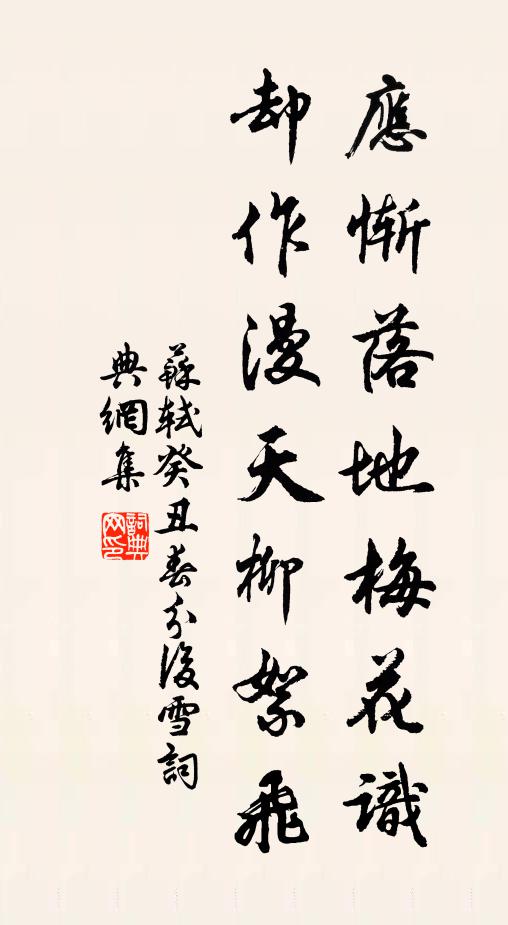 應慚落地梅花識
却作漫天柳絮飛
蘇軾癸丑春分後雪詞
典網集
詞典網印